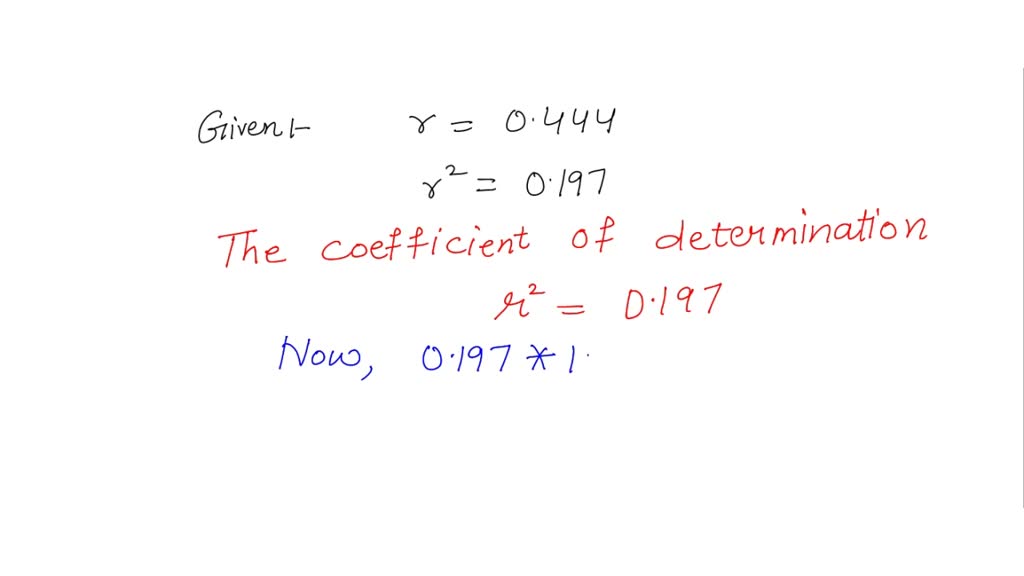 Given:- r = 0.444
r² = 0.197
The coefficient of determination
r² = 0.197
Now, 0.197 * 1.